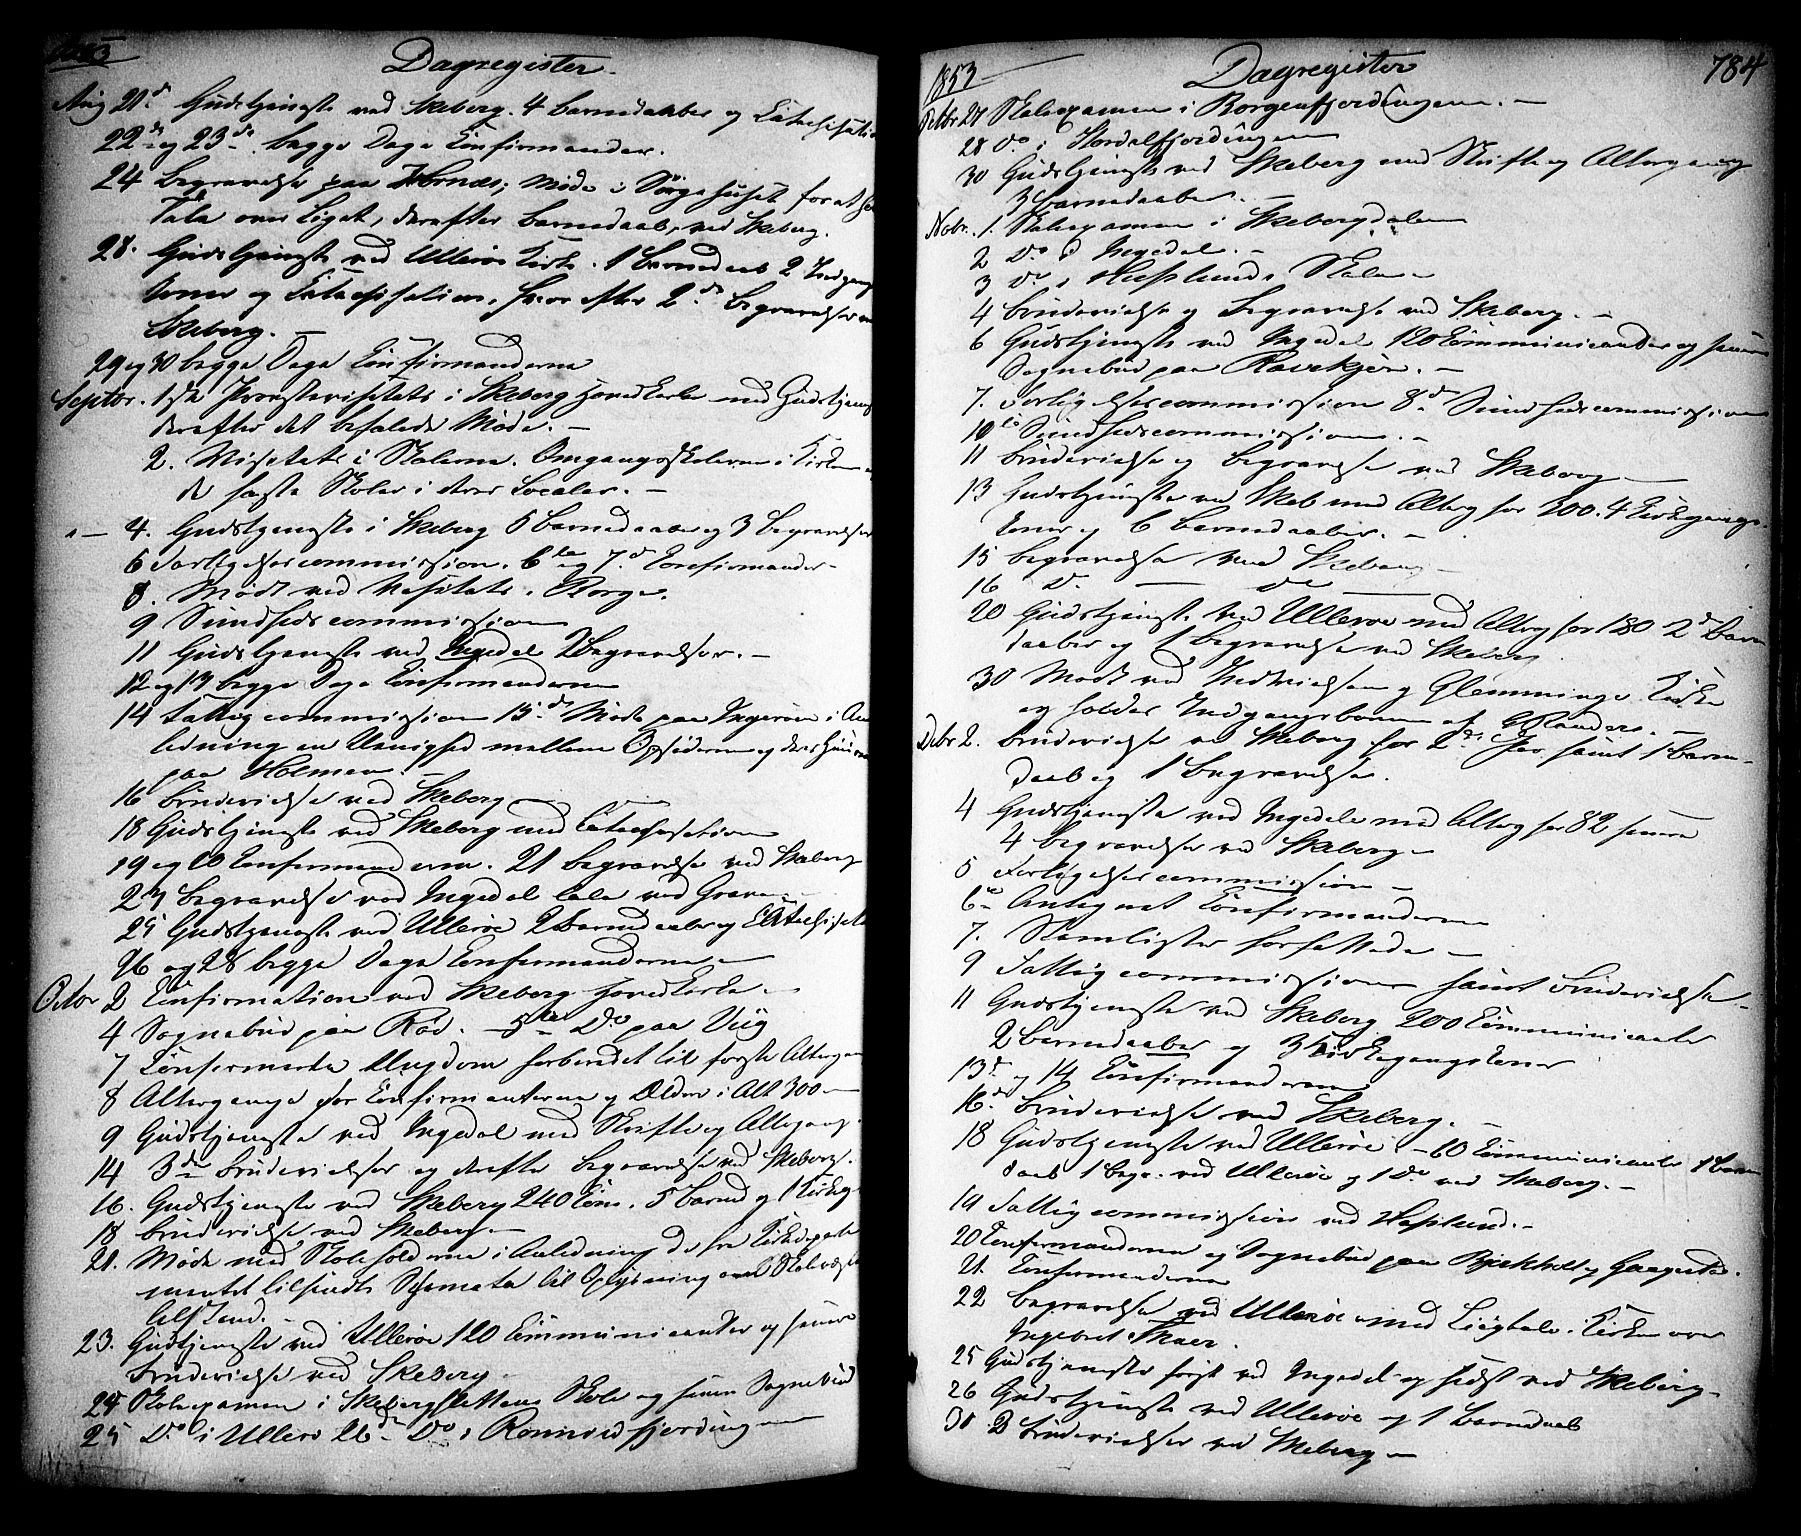 1853
Dagregister.
Aug 21de Gudstjeneste ved Skeberg. 4 Barnedaaber og Catechisation
22de og 23de begge Dage Confirmander.
24 Begravelse paa Hornæs; Møde i Sørgehuset for at holde
Tale over Liget, derefter Barnedaab ved Skeberg.
28. Gudstjeneste ved Ullerøe Kirke. 1 Barnedaab 2 Indgangs
koner og Catechisation, herefter 2de Begravelser ved
Skeberg. —
29 og 30 begge Dage Confirmanderne
Septbr. 1ste Provstevisitats i Skeberg Hovedkirke med Gudstjeneste
derefter det befalede Møde. —
2. Visitats i Skolerne. Omgangsskolerne i Kirken og
de faste Skoler i deres Localer. —
4. Gudstjeneste i Skeberg 5 Barnedaaber og 3 Begravelser
6 Forligelsescommission. 6te og 7de Confirmander—
8. Mødt ved Visitats i Borge.
9 Sundhedscommission
11 Gudstjeneste ved Ingedal 2 Begravelser. —
12 og 13 begge Dage Confirmanderne
14 Fattigcommission 15de Møde paa Ingerøen i An
ledning en Uenighed mellem Opsidderne og deres
paa Holmen.
16 Brudevielse ved Skeberg
18 Gudstjeneste ved Skeberg med Catechisation
19 og 20 Confirmanderne. 21 Begravelse ved Skeberg
23 Begravelse ved Ingedal Tale ved Graven
25 Gudstjeneste ved Ullerøe 2 Barnedaaber og Catechisat
26 og 28 begge Dage Confirmanderne —
Octbr 2 Confirmation ved Skeberg Hovedkirke. —
4 Sognebud paa Rød. — 5te Do paa Viig
7 Confirmerte Ungdom forberedet til første Altergan
8 Altergange for Confirmanterne og Ældre i Alt 300—
9 Gudstjeneste ved Ingedal med Skrifte og Altergang.
14 3de Brudevielser og derefter Begravelse ved Skeberg.
16. Gudstjeneste ved Skeberg 240 Com. 5 Barned og 1 Kirkeg
18 Brudevielse ved Skeberg—
21. Møde med Skoleholderne i Anledning de fra Kirkedeparte
mentet tilsendte Schemata til Oplysning om Skolevæs
tilstand. —
23. Gudstjeneste ved Ullerøe 120 Communicanter og senere
Brudevielse ved Skeberg
24 Skoleexamen i Skebergslettens Skole og senere Sognebud
25 Do i Ullerø 26de Do i Rønnildfjerding
1853
Dagregister
784
Octbr 27 Skoleexamen i Borgenfjerdingen. —
28 Do i Hordalfjerdingen
30 Gudstjeneste ved Skeberg med Skrifte og Altergang
3 Barnedaaber. —
Nobr. 1. Skoleexamen i Skebergdalen
2 Do i Ingedal. —
3 Do i Hafslunds Skole —
4 Brudevielse og Begravelse ved Skeberg. —
6 Gudstjeneste ved Ingedal 120 Communicander og senere
Sognebud paa Ravekjær. —
7. Forligelsescommission 8de Sundhedscommission
10de Sundhedscommission. —
11 Brudevielse og Begravelse ved Skeberg —
13 Gudstjeneste ved Skeb med Alterg for 200. 4 Kirkegangs-
koner og 6 Barnedaaber. —
15 Begravelse ved Skeberg
16 Do — Do —
20 Gudstjeneste ved Ullerøe med Alterg for 180 2de Barn
daaber og 1 Begravelse ved Skeberg
30 Mødt ved Indvielsen af Glemminge Kirke
og holdt Indgangsbønnen af
Debr 2. Brudevielse ved Skeberg for 2de Par, samt 1 Barne-
daab og 1 Begravelse.
4 Gudstjeneste ved Ingedal med Alterg for 82 senere
4 Begravelser ved Skeberg—
5 Forligelsescommission —
6te Antegnet Confirmanderne
7. Stamlister forfattede —
9 Fattigcommission samt Brudevielse —
11 Gudstjeneste ved Skeberg 200 Communicanter
2 Barnedaaber og 3 Kirkegangskoner
13de og 14 Confirmanderne
16de Brudevielse ved Skeberg. —
18 Gudstjeneste ved Ullerøe — 60 Communicanter 1 Barne
daab 1 Begr. ved Ullerøe og 1 Do ved Skeberg. —
19 Fattigcommission ved Hafslund. —
20 Confirmanderne og Sognebud paa Bjørkholt og
21. Confirmanderne
22 Begravelse ved Ullerøe med Liigtale i Kirken over
Ingebret Skaar.
25 Gudstjeneste først ved Ingedal og sidst ved Skeberg—
26 Gudstjeneste ved Ullerøe og 1 Barnedaab
30. 2 Brudevielser ved Skeberg —